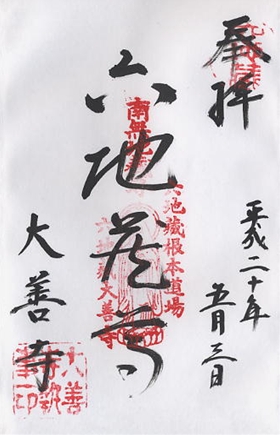 奉拝
平成二十年
五月三日
六地蔵尊
南無地蔵
六地蔵根本道場
六地蔵大善寺
大善寺